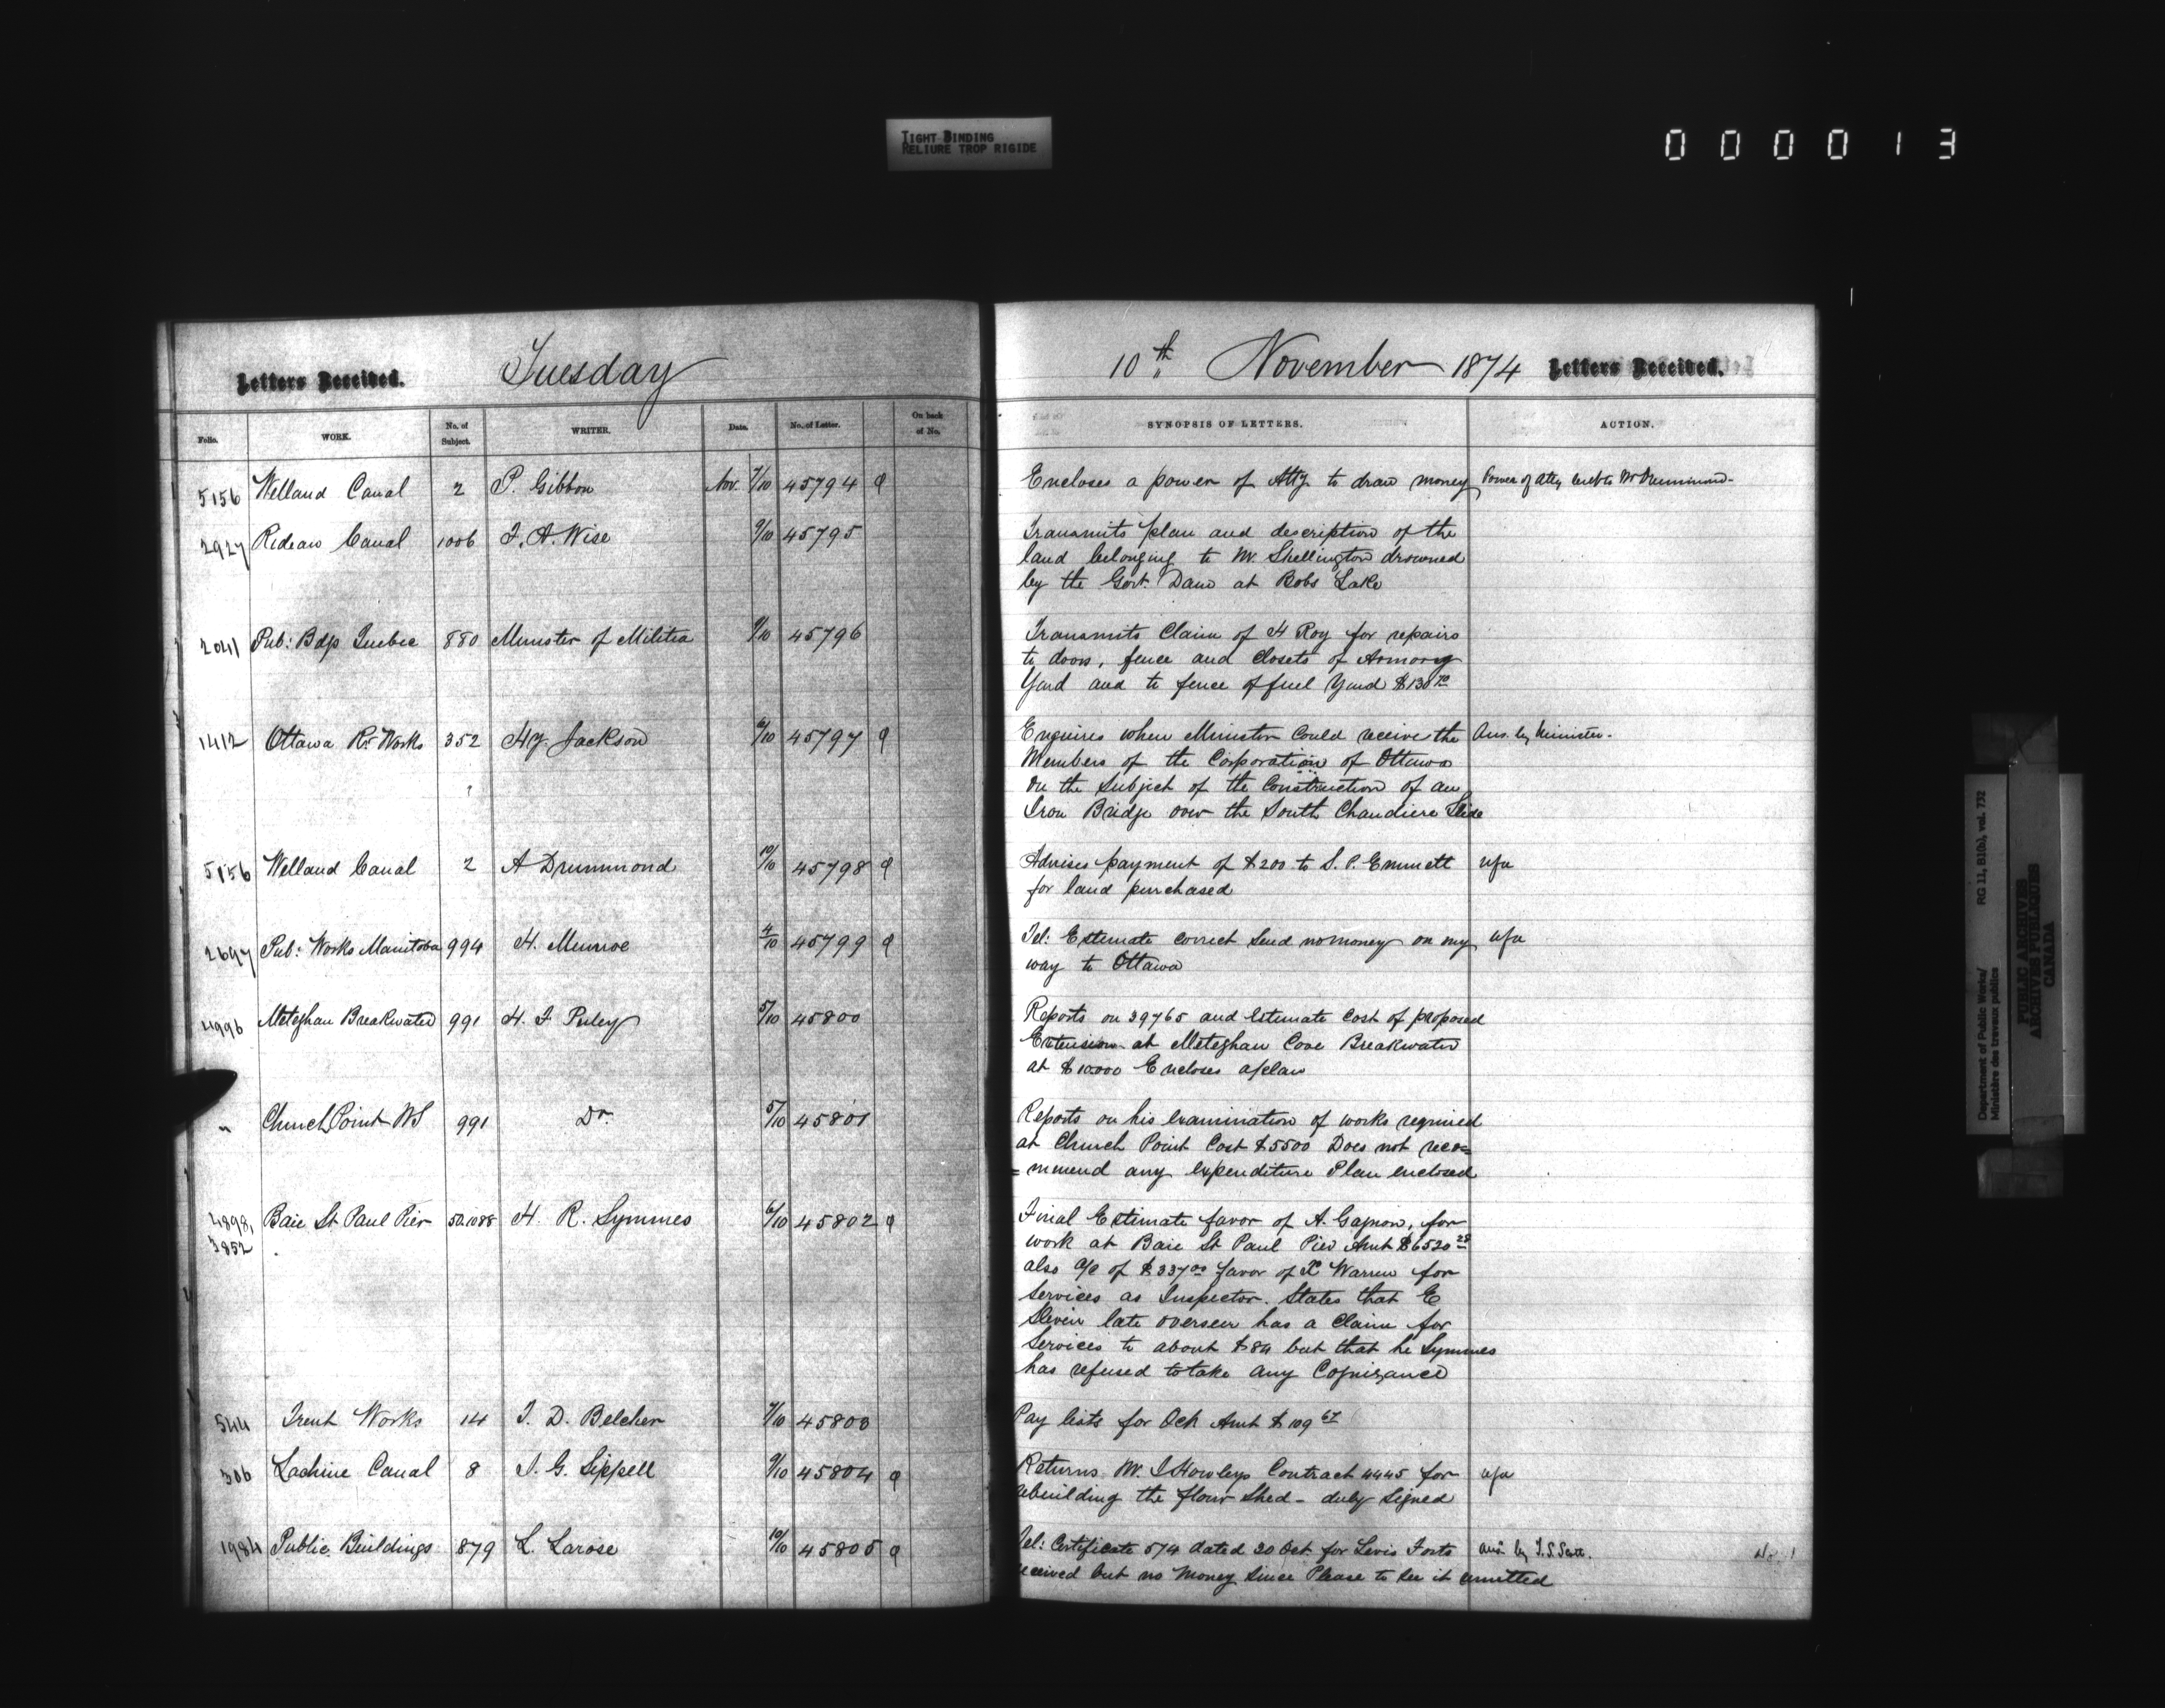 TIGHT BINDING
RELIURE TROP RIGIDE
000013
Letters Received.
Tuesday
10th November 1874
Letters Received.
Folio. WORK. No. of Subject. WRITER. Date. No. of Letter. On back of No. SYNOPSIS OF LETTERS. ACTION.
5156 Welland Canal 2 P. Gibbon Nov. 7/10 45794 Encloses a power of Atty to draw money Power of Atty sent to Mr Drummond
2927 Rideau Canal 1006 F. A. Wise 9/10 45795 Transmits plan and description of the
land belonging to Mr. Shellington drowned
by the Govt. Dam at Bobs Lake
2041 Pub: Bdgs Quebec 880 Minister of Militia 9/10 45796 Transmits Claim of H Roy for repairs
to doors, fence and closets of Armory
Yard and to fence of fuel Yard $130 70
1412 Ottawa Rr Works 352 Hy. Jackson 6/10 45797 Enquires when Minister could receive the Ans. by Minister.
Members of the Corporation of Ottawa
on the subject of the Construction of an
Iron Bridge over the South Chaudiere Slide
5156 Welland Canal 2 A Drummond 10/10 45798 Advises payment of $200 to S. P. Emmett
for land purchased
2697 Pub: Works Manitoba 994 H. Munroe 4/10 45799 Tel: Estimate correct Send no money on my
way to Ottawa
4996 Meteghan Breakwater 991 H. F Perley 5/10 45800 Reports on 39765 and estimate cost of proposed
Extension at Meteghan Cove Breakwater
at $10000 Encloses a plan
" Church Point NS 991 Do. 5/10 45801 Reports on his examination of works required
at Church Point Cost $5500 Does not reco=
=mmend any expenditure Plan enclosed
4898, Baie St Paul Pier 50.1088 H. R. Symmes 6/10 45802 Final Estimate favor of A. Gagnon, for
3852 work at Baie St Paul Pier Amt $6520 28
also a/c of $337 00 favor of X Warren for
services as Inspector. States that E
Slevin late overseer has a claim for
Services to about $84 but that he Symmes
has refused to take any Cognizance
544 Trent Works 14 T. D. Belcher 7/10 45803 Pay lists for Oct Amt $109 67
306 Lachine Canal 8 J. G. Sippell 9/10 45804 Returns Mr. J Howleys Contract 4445 for
rebuilding the flour Shed - duly signed
1984 Public Buildings 879 L. Larose 10/10 45805 Tel: Certificate 574 dated 20 Oct for Levis Forts ans by T. S. Scott.
received but no money since Please to see it remitted
Department of Public Works/
Ministère des travaux publics
RG 11, B1(b), vol. 732
PUBLIC ARCHIVES
ARCHIVES PUBLIQUES
CANADA